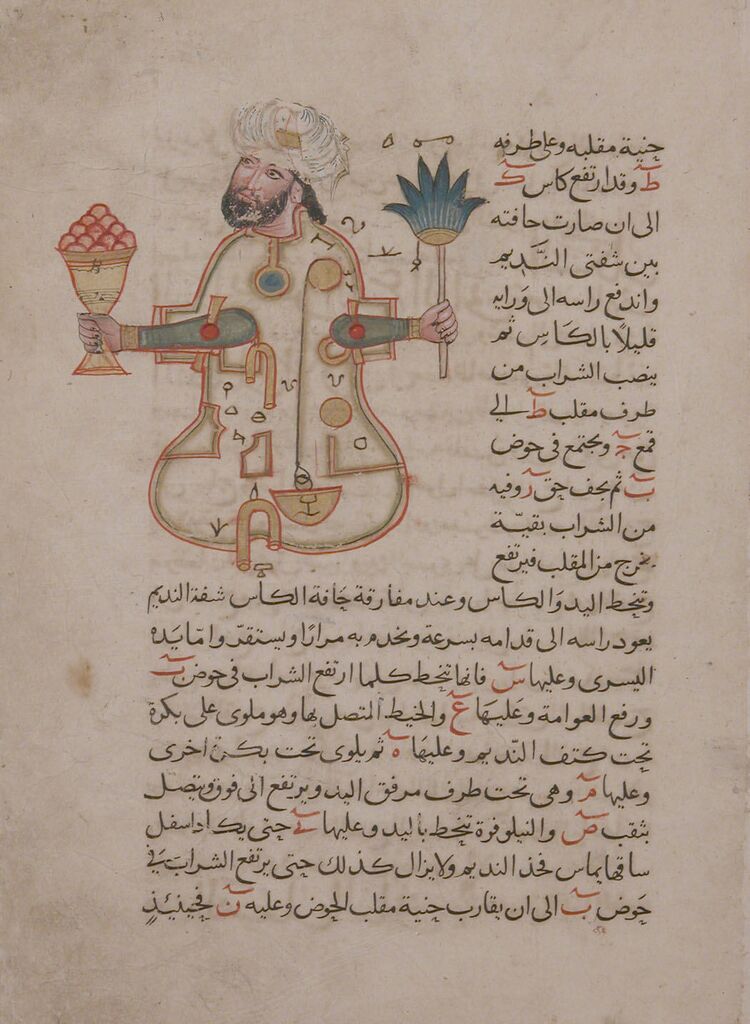 جنبة مقلبه وعلى طرفه
ط وقد ارتفع كاس ك
الى ان صارت حافته
بين شفتى النديم
واندفع راسه الى ورايه
قليلًا بالكاس ثم
ينصب الشراب من
طرف مقلب ط الى
قمع ج ويجتمع فى حوض
ب ثم يجف حق ر وفيه
من الشراب بقيّة
يخرج من المقلب فيرتفع
وتنحط اليد والكاس وعند مفارقة حافة الكاس شفة النديم
يعود راسه الى قدامه بسرعة ويخدم به مرارًا ويستقر واما يده
اليسرى وعليها س فانها تنحط كلما ارتفع الشراب فى حوض ب
ورفع العوامة وعليها ع والخيط المتصل بها وهو ملوى على بكرة
تحت كتف النديم وعليها ه ثم يلوى تحت بكرة اخرى
وعليها م وهى تحت طرف مرفق اليد ويرتفع الى فوق ويتصل
بثقب ص والنيلوفرة تنحط باليد وعليها حتى يكاد اسفل
ساقها يماس فخذ النديم ولا يزال كذلك حتى يرتفع الشراب فى
حوض ب الى ان يقارب جنبة مقلب الحوض وعليه ن فحينيذٍ